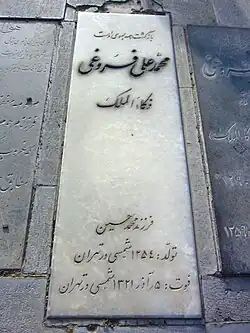 بازگشت همه بسوی اوست
محمد علی فروغی
ذکاء الملک
فرزند محمد حسین
تولد: ۱۲۵۴ شمسی در تهران
فوت: ۵ آذر ۱۳۲۱ شمسی در تهران
۱۳۵۹